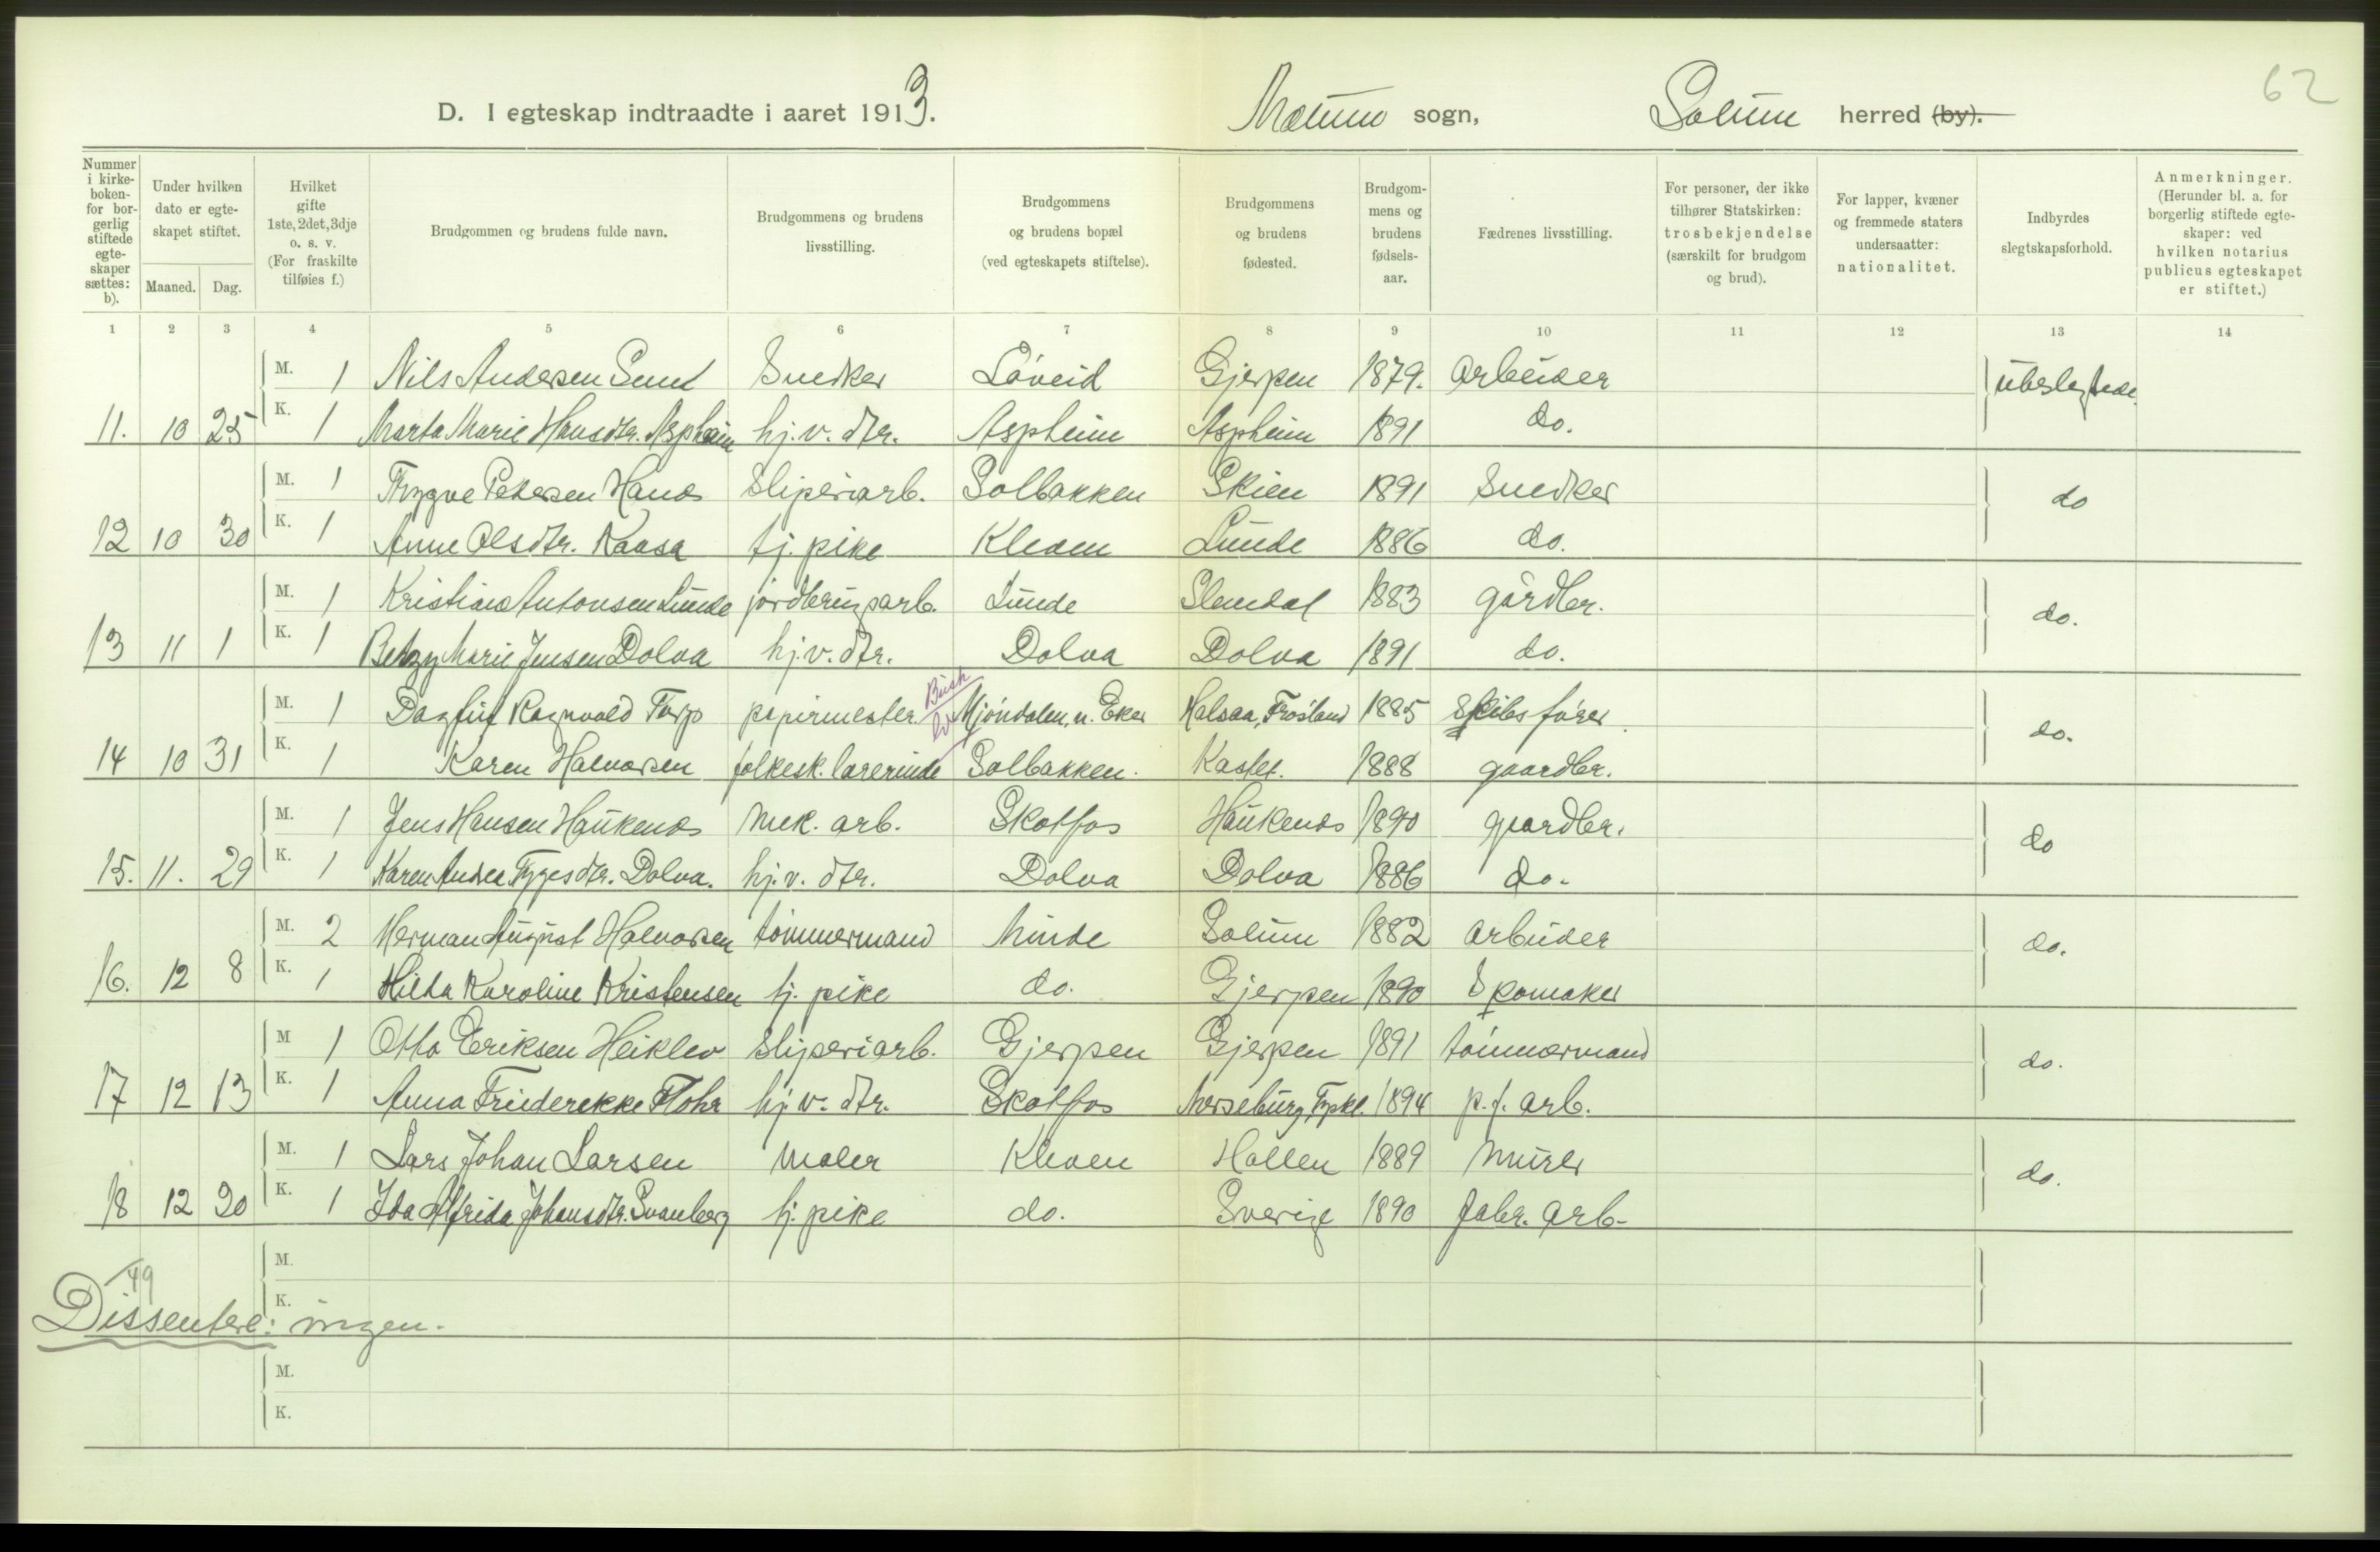 62
D. I egteskap indtraadte i aaret 1913. Mælum sogn, Solum herred (by).
Nummer i kirkeboken- for borgerlig stiftede egteskaper sættes: b). Under hvilken dato er egteskapet stiftet. Maaned. Dag. Hvilket gifte 1ste, 2det, 3dje o. s. v. (For fraskilte tilføies f.) Brudgommen og brudens fulde navn. Brudgommens og brudens livsstilling. Brudgommens og brudens bopæl (ved egteskapets stiftelse). Brudgommens og brudens fødested. Brudgommens og brudens fødselsaar. Fædrenes livsstilling. For personer, der ikke tilhører Statskirken: trosbekjendelse (særskilt for brudgom og brud). For lapper, kvæner og fremmede staters undersaatter: nationalitet. Indbyrdes slegtskapsforhold. Anmerkninger. (Herunder bl. a. for borgerlig stiftede egteskaper: ved hvilken notarius publicus egteskapet er stiftet.)
1 2 3 4 5 6 7 8 9 10 11 12 13 14
M. 1 Nils Andersen Sund Snedker Løveid Gjerpen 1879. Arbeider ubeslegtede.
11. 10 25 K. 1 Marta Marie Hansdtr. Aspheim hj. v. dtr. Aspheim Aspheim 1891 do.
M. 1 Trygve Petersen Hanås Sliperiarb. Solbakken Skien 1891 Snedker do
12 10 30 K. 1 Anne Olsdtr. Kaasa tj. pike Kleven Lunde 1886 do.
M. 1 Kristian Antonsen Lunde jordbrugsarb. Lunde Slemdal 1883 gårdbr. do.
13 11 1 K. 1 Betzy Marie Jensen Dolva hj. v. dtr. Dolva Dolva 1891 do.
M. 1 Dagfin Ragnvald Torp papirmester Mjøndalen, n. Eker Halsaa, 1885 Skibsfører. do.
14 10 31 K. 1 Karen Halvorsen folkesk. lærerinde Solbakken. Kastet. 1888 gaardbr.
M. 1 Jens Hansen Haukenæs Mek. arb. Skotfos Haukenæs 1890 gaardbr. do
15. 11. 29 K. 1 Karen Andrea Tygesdtr. Dolva. hj. v. dtr. Dolva Dolva 1886 do.
M. 2 Herman August Halvorsen tømmermand Minde Solum 1882 Arbeider do.
16. 12 8 K. 1 Hilda Karoline Kristensen tj. pike do. Gjerpen 1890 Skomaker
M 1 Otto Eriksen Heiklev Sliperiarb. Gjerpen Gjerpen 1891 tømmermand do.
17 12 13 K. 1 Anna Friederekke Flohr hj. v. dtr. Skotfos Merseburg, Tyskl. 1894 p. f. arb.
M. 1 Lars Johan Larsen Maler Kleven Hollen 1889 Murer do.
18 12 20 K. 1 Ida Alfrida Johansdtr. Svanberg tj. pike do. Sverige 1890 fabr. arb.
M.
49
K.
Dissentere: ingen.
M.
K.